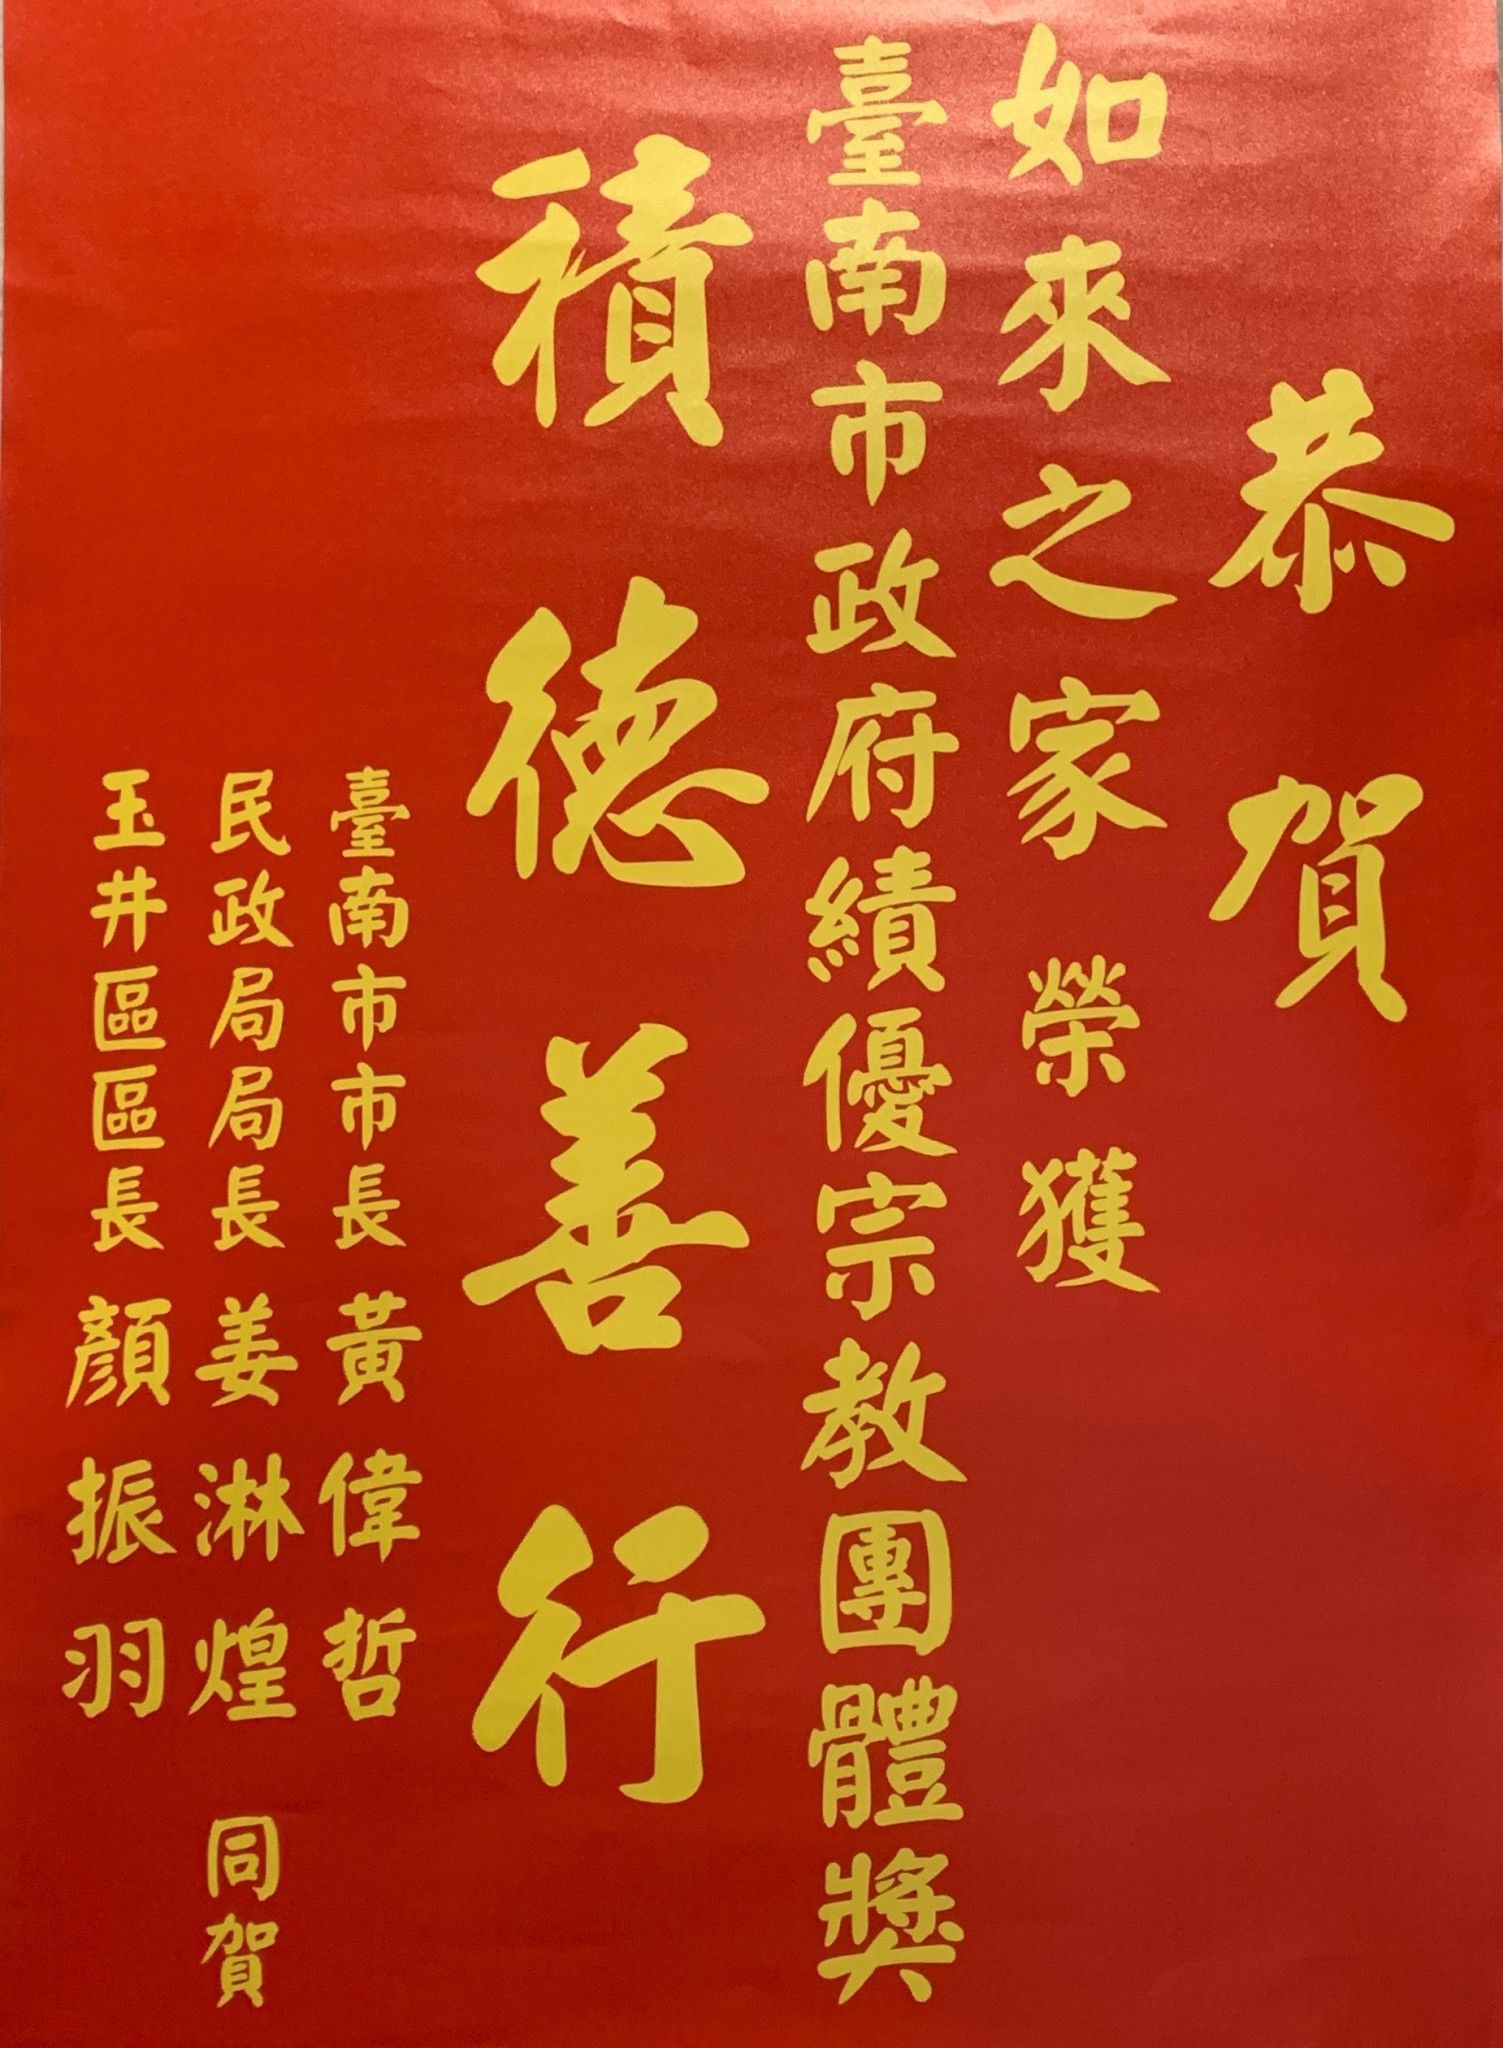 恭賀
如來之家 榮獲
臺南市政府績優宗教團體獎
積德善行
臺南市市長 黃偉哲
民政局局長 姜淋煌 同賀
玉井區區長 顏振羽